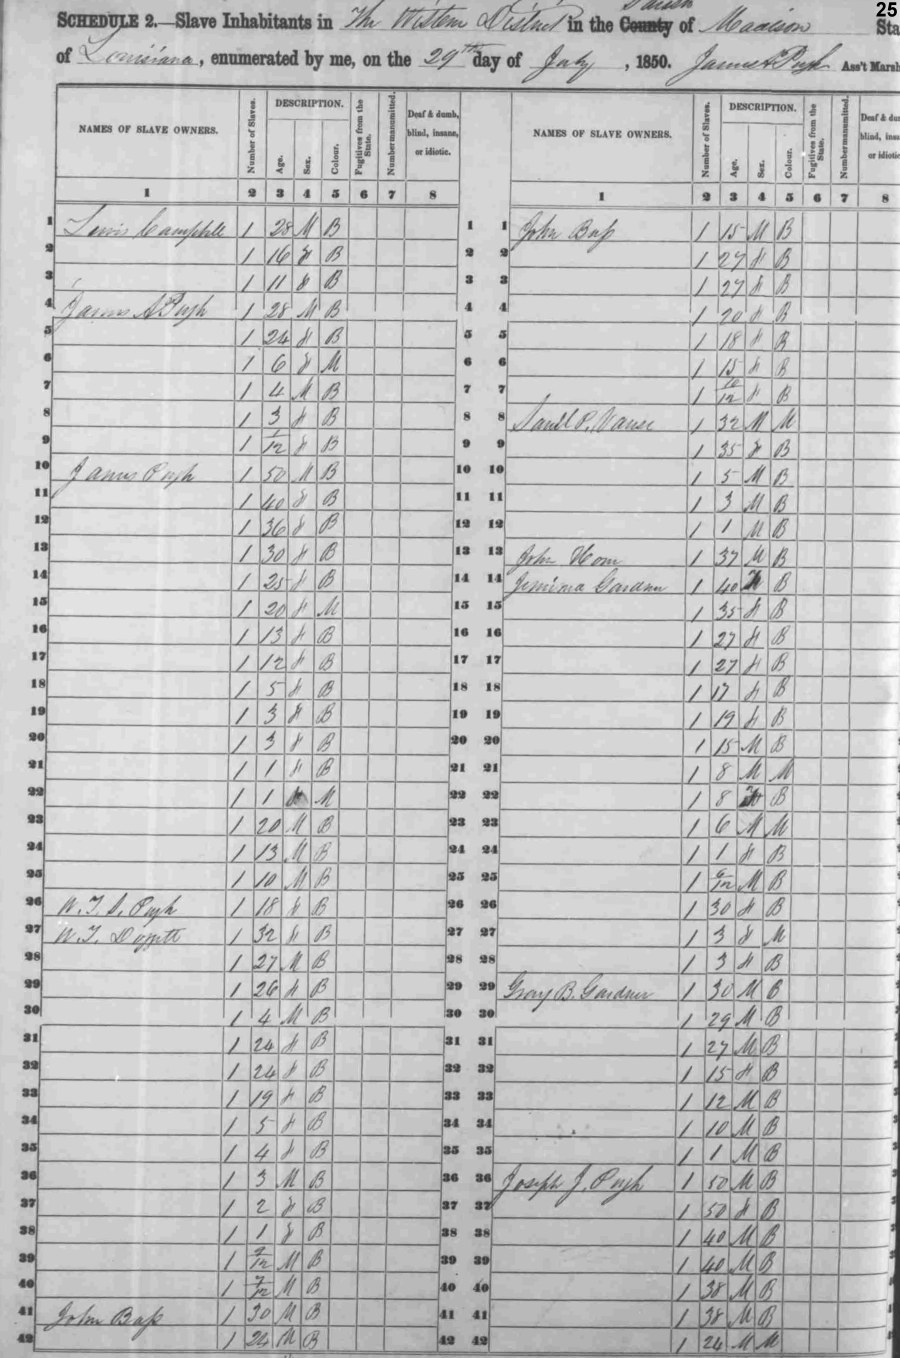 25
SCHEDULE 2.—Slave Inhabitants in The Western District in the County Parish of Madison Sta
of Louisiana, enumerated by me, on the 29th day of July, 1850. James A Pugh Ass't Marsh
NAMES OF SLAVE OWNERS. Number of Slaves. DESCRIPTION. Age. Sex. Colour. Fugitives from the State. Number manumitted. Deaf & dumb, blind, insane, or idiotic. NAMES OF SLAVE OWNERS. Number of Slaves. DESCRIPTION. Age. Sex. Colour. Fugitives from the State. Number manumitted. Deaf & dum blind, insane, or idiotic
1 2 3 4 5 6 7 8 1 2 3 4 5 6 7 8
1 Lewis Campbell 1 28 M B 1 1 John Bass 1 15 M B
2 1 16 F B 2 2 1 27 F B
3 1 11 F B 3 3 1 27 F B
4 James A Pugh 1 28 M B 4 4 1 20 F B
5 1 24 F B 5 5 1 18 F B
6 1 6 F M 6 6 1 15 F B
7 1 4 M B 7 7 1 10/12 F B
8 1 3 F B 8 8 Saml P. Vause 1 32 M M
9 1 1/12 F B 9 9 1 35 F B
10 James Pugh 1 50 M B 10 10 1 5 M B
11 1 40 F B 11 11 1 3 M B
12 1 36 F B 12 12 1 1 M B
13 1 30 F B 13 13 John Horn 1 37 M B
14 1 25 F B 14 14 Jemima Gardner 1 40 B
15 1 20 F M 15 15 1 35 F B
16 1 13 F B 16 16 1 27 F B
17 1 12 F B 17 17 1 27 F B
18 1 5 F B 18 18 1 17 F B
19 1 3 F B 19 19 1 19 F B
20 1 3 F B 20 20 1 15 M B
21 1 1 F B 21 21 1 8 M M
22 1 1 M 22 22 1 8 B
23 1 20 M B 23 23 1 6 M M
24 1 13 M B 24 24 1 1 F B
25 1 10 M B 25 25 1 6/12 M B
26 W. T. S. Pugh 1 18 F B 26 26 1 30 F B
27 W. T. Doggett 1 32 F B 27 27 1 3 F M
28 1 27 M B 28 28 1 3 F B
29 1 26 F B 29 29 Gray B. Gardner 1 30 M B
30 1 4 M B 30 30 1 29 M B
31 1 24 F B 31 31 1 27 M B
32 1 24 F B 32 32 1 15 F B
33 1 19 F B 33 33 1 12 M B
34 1 5 F B 34 34 1 10 M B
35 1 4 F B 35 35 1 1 M B
36 1 3 M B 36 36 Joseph J. Pugh 1 50 M B
37 1 2 F B 37 37 1 50 F B
38 1 1 F B 38 38 1 40 M B
39 1 9/12 M B 39 39 1 40 M B
40 1 7/12 M B 40 40 1 38 M B
41 John Bass 1 30 M B 41 41 1 38 M B
42 1 24 M B 42 42 1 24 M M